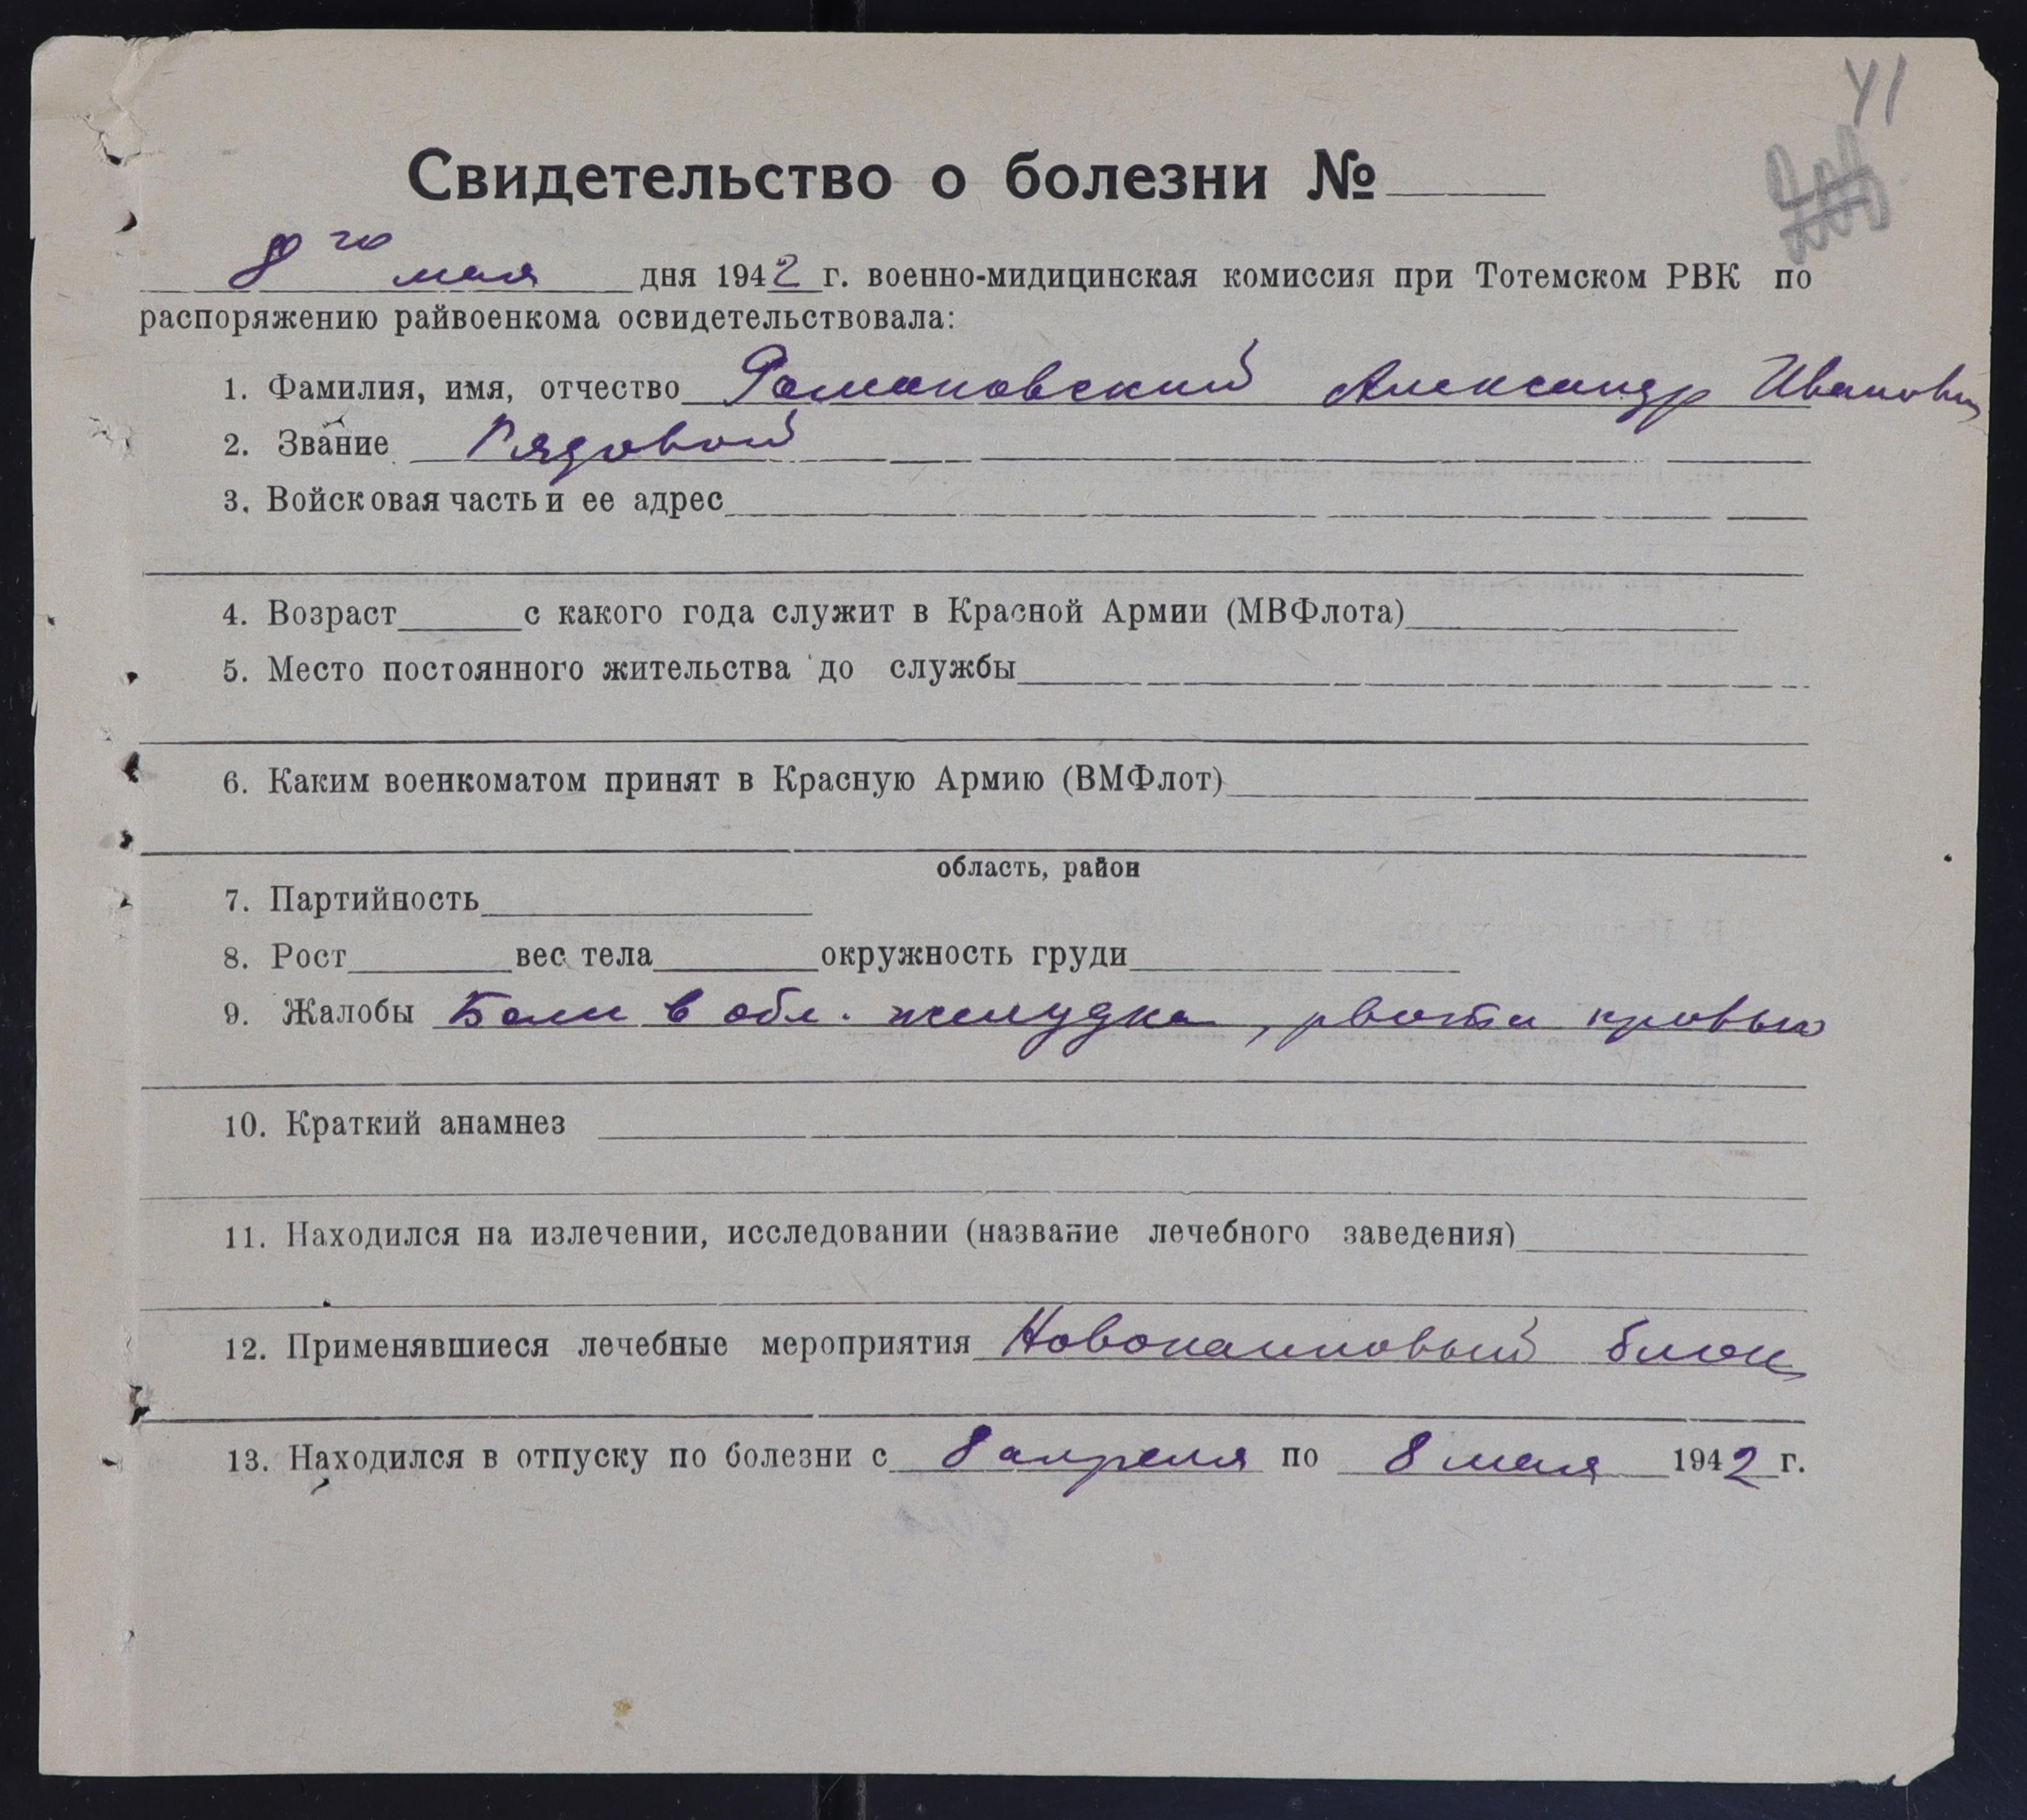 41
Свидетельство о болезни №
8го мая дня 1942 г. военно-мидицинская комиссия при Тотемском РВК по
распоряжению райвоенкома освидетельствовала:
1. Фамилия, имя, отчество Романовский Александр Иванович
2. Звание Рядовой
3. Войсковая часть и ее адрес
4. Возраст с какого года служит в Красной Армии (МВФлота)
5. Место постоянного жительства до службы
6. Каким военкоматом принят в Красную Армию (ВМФлот)
область, район
7. Партийность
8. Рост вес тела окружность груди
9. Жалобы Боли в обл. желудка, рвоты кровью
10. Краткий анамнез
11. Находился на излечении, исследовании (название лечебного заведения)
12. Применявшиеся лечебные мероприятия Новокаиновый блок
13. Находился в отпуску по болезни с 8 апреля по 8 мая 1942 г.